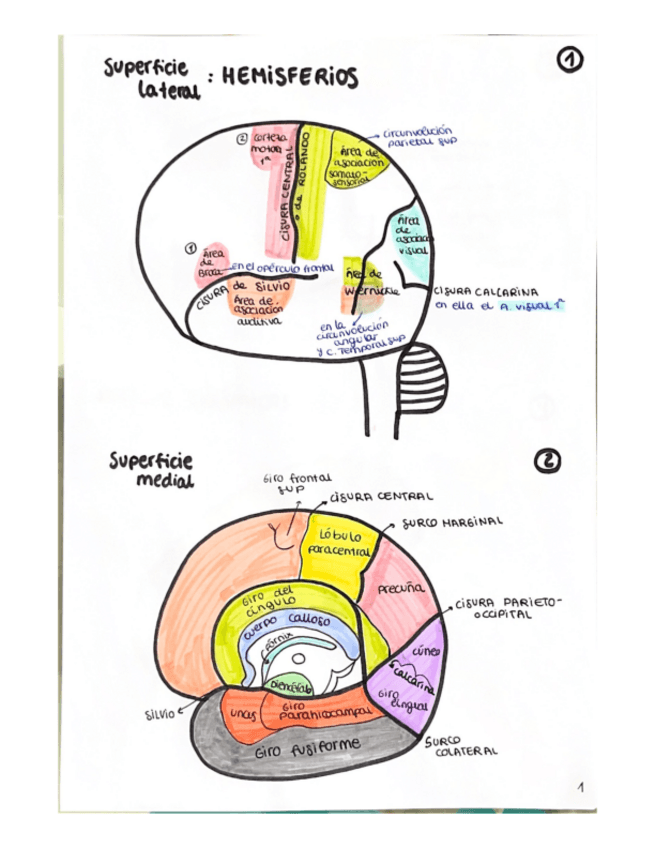 Superficie
lateral : HEMISFERIOS
1
2 corteza
motora
1ª
CISURA CENTRAL
de ROLANDO
circunvolución
parietal sup
Área de
asociación
somato-
sensorial
Área
de
asociación
visual
1
Área
de
Broca
en el opérculo frontal
CISURA de SILVIO
Área de
asociación
auditiva
Área de
Wernicke
en la
circunvolución
angular
y C. Temporal sup
CISURA CALCARINA
en ella el A. visual 1ª
Superficie
medial
2
Giro frontal
sup
CISURA CENTRAL
SURCO MARGINAL
Lóbulo
paracentral
precuña
CISURA PARIETO-
OCCIPITAL
Giro del
cíngulo
cuerpo calloso
Fórnix
Diencéfalo
cúneo
calcarina
Giro
Lingual
SILVIO
uncus
Giro
Parahipocampal
Giro fusiforme
SURCO
COLATERAL
1